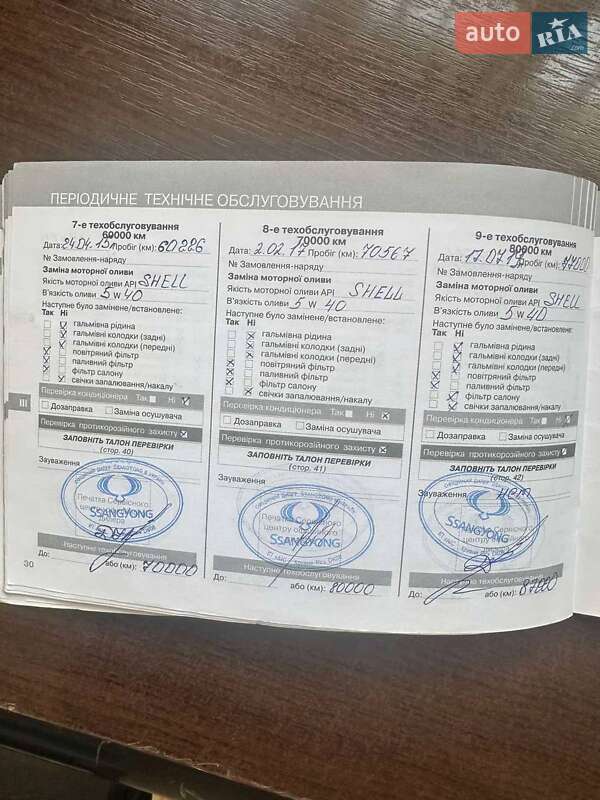 auto RIA .com
ПЕРІОДИЧНЕ ТЕХНІЧНЕ ОБСЛУГОВУВАННЯ
7-е техобслуговування
60000 км
Дата: Пробіг (км): 60226
№ Замовлення-наряду
Заміна моторної оливи
Якість моторної оливи API SHELL
В'язкість оливи 5 w 40
Наступне було замінене/встановлене:
Так Ні
гальмівна рідина
гальмівні колодки (задні)
гальмівні колодки (передні)
повітряний фільтр
паливний фільтр
фільтр салону
свічки запалювання/накалу
Перевірка кондиціонера Так Ні
Дозаправка Заміна осушувача
Перевірка протикорозійного захисту
ЗАПОВНІТЬ ТАЛОН ПЕРЕВІРКИ
(стор. 40)
Зауваження
Печатка Сервісного
SSANGYONG
Наступне техобслуговування
До: або (км): 70000
30
8-е техобслуговування
70000 км
Дата: 2.02.17 Пробіг (км): 70567
№ Замовлення-наряду
Заміна моторної оливи
Якість моторної оливи API SHELL
В'язкість оливи 5 w 40
Наступне було замінене/встановлене:
Так Ні
гальмівна рідина
гальмівні колодки (задні)
гальмівні колодки (передні)
повітряний фільтр
паливний фільтр
фільтр салону
свічки запалювання/накалу
Перевірка кондиціонера Так Ні
Дозаправка Заміна осушувача
Перевірка протикорозійного захисту
ЗАПОВНІТЬ ТАЛОН ПЕРЕВІРКИ
(стор. 41)
Зауваження
Печатка Сервісного
центру офіційного
SSANGYONG
Наступне техобслуговування
До: або (км): 80000
9-е техобслуговування
80000 км
Дата: Пробіг (км):
№ Замовлення-наряду
Заміна моторної оливи
Якість моторної оливи API SHELL
В'язкість оливи 5 w 40
Наступне було замінене/встановлене:
Так Ні
гальмівна рідина
гальмівні колодки (задні)
гальмівні колодки (передні)
повітряний фільтр
паливний фільтр
фільтр салону
свічки запалювання/накалу
Перевірка кондиціонера Так Ні
Дозаправка Заміна осушувача
Перевірка протикорозійного захисту
ЗАПОВНІТЬ ТАЛОН ПЕРЕВІРКИ
(стор. 42)
Зауваження
SSANGYONG
Наступне техобслуговування
До: або (км): 87000
III